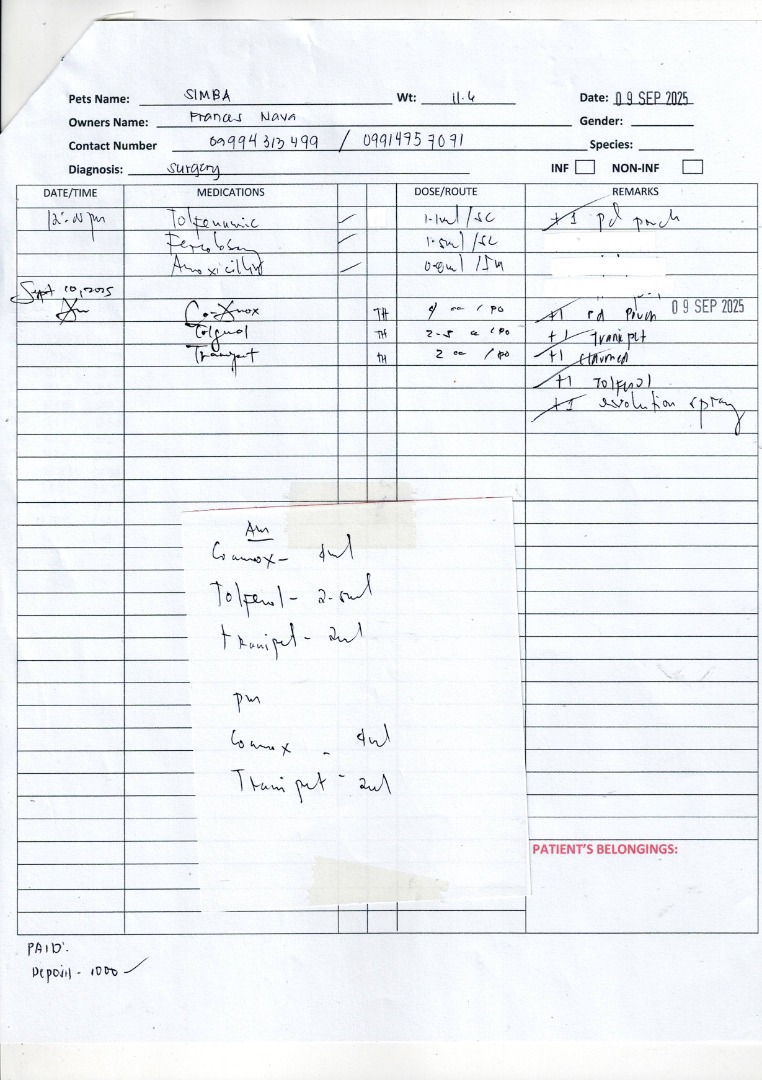 Pets Name: SIMBA Wt: 11.4 Date: 09 SEP 2025
Owners Name: Frances Nava Gender:
Contact Number 09994313499 / 09914757071 Species:
Diagnosis: surgery INF NON-INF
DATE/TIME MEDICATIONS DOSE/ROUTE REMARKS
Tolfenamic 1.1ml /SC +1 pd pouch
1.5ml /SC
Amoxicillin 0.8ml /IM
Sept 10, 2025
Am TH cc / PO +1 rd Pouch 09 SEP 2025
TH 2-5 cc / PO +1 Tranipet
TH 2 cc / PO +1
+1 Tolfenol
+1 evolution spray
Am
Coamox - 4ml
Tolfenol - 2-5ml
tranipet - 2ml
pm
Coamox - 4ml
Tranipet - 2ml
PATIENT'S BELONGINGS:
PAID:
Deposit - 1000